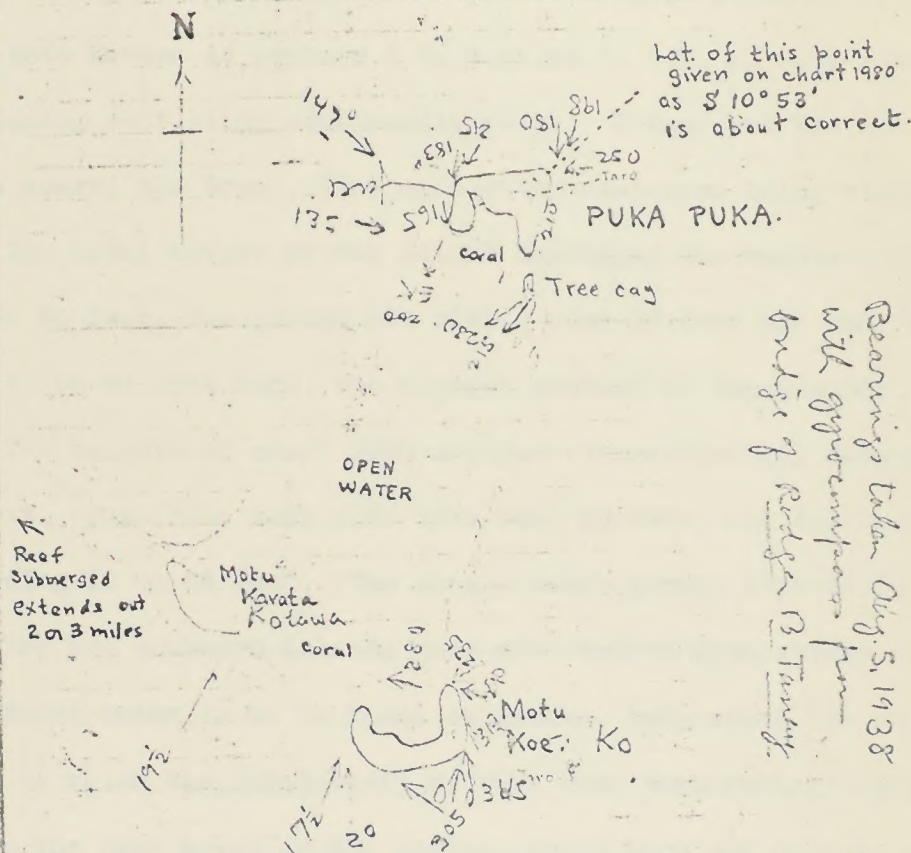 N
Lat. of this point
given on chart 1980
as S 10° 53'
is about correct.
147°
215
183°
180
198
250
Taro
135
195
212
PUKA PUKA.
coral
200
Tree cay
230
212
OPEN
WATER
Reef
Submerged
extends out
2 or 3 miles
Motu
Kavata
Kotawa
coral
280
235
Motu
Koe. Ko
312
345
19½
17½
2°
305
Bearings taken Aug 5, 1938
with gyrocompass from
bridge of Rodger B. Taney.